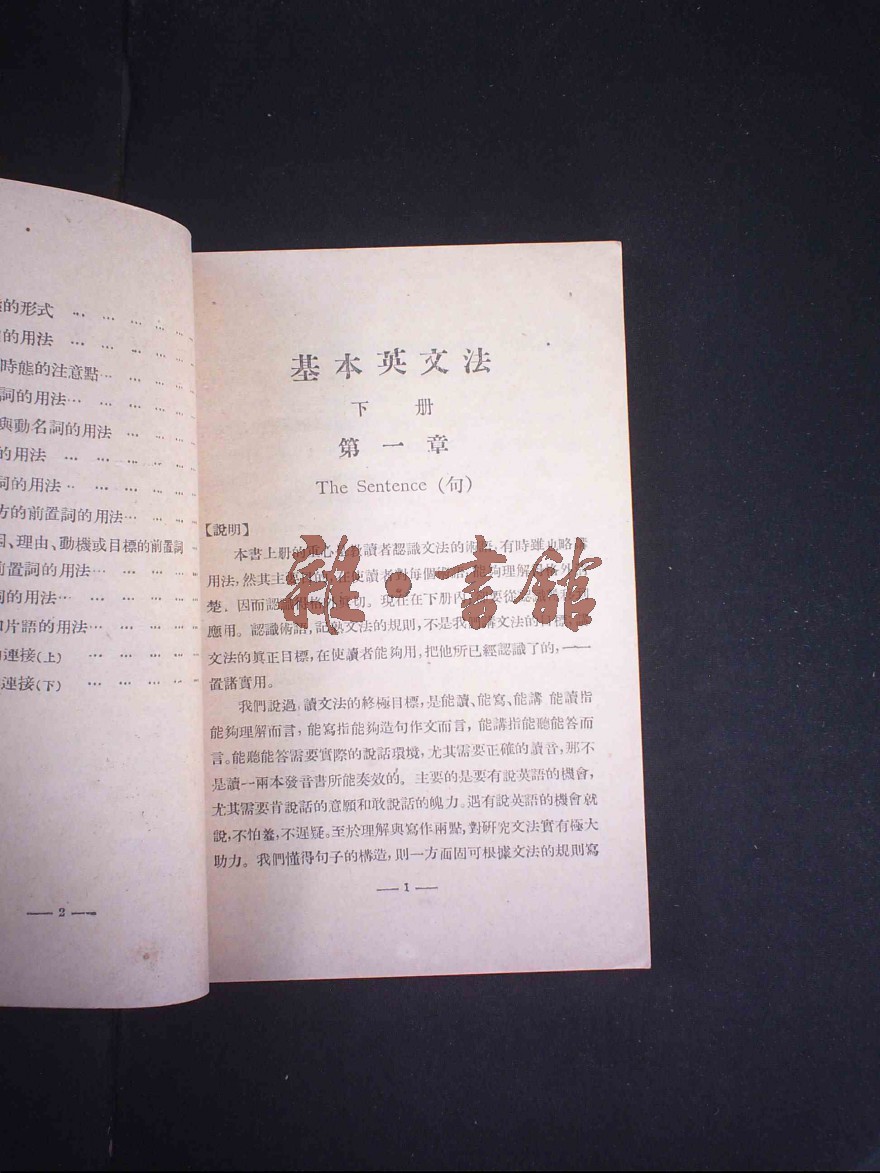 的形式 … … … … …
的用法 … … … … …
時態的注意點… … … …
詞的用法… … … … …
與動名詞的用法 … … …
的用法 … … … … …
詞的用法… … … … …
方的前置詞的用法… … …
、理由、動機或目標的前置詞
前置詞的用法… … … …
詞的用法… … … … …
和片語的用法… … … …
連接(上) … … … …
連接(下) … … … …
— 2 —
基本英文法
下 册
第一章
The Sentence (句)
【說明】
本書上册的重心 教讀者認識文法的術語,有時雖也略
用法,然其主 在使讀者對每個 能夠理解 格外
楚,因而認識 切。現在在下册內 要從認識
應用。認識術語,記熟文法的規則,不是我們 文法的目標,
文法的眞正目標,在使讀者能夠用,把他所已經認識了的,——
置諸實用。
我們說過,讀文法的終極目標,是能讀、能寫、能講 能讀指
能夠理解而言,能寫指能夠造句作文而言,能講指能聽能答而
言。能聽能答需要實際的說話環境,尤其需要正確的讀音,那不
是讀一兩本發音書所能奏效的。主要的是要有說英語的機會,
尤其需要肯說話的意願和敢說話的魄力。遇有說英語的機會就
說,不怕羞,不遲疑。至於理解與寫作兩點,對研究文法實有極大
助力。我們懂得句子的構造,則一方面固可根據文法的規則寫
— 1 —
雜·書館